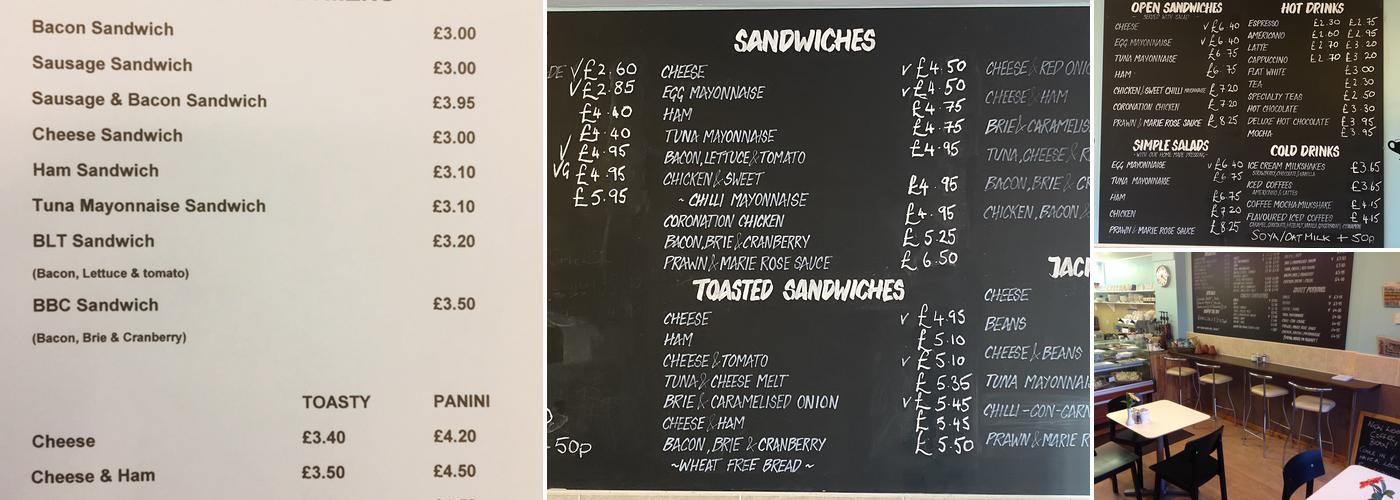 Bacon Sandwich £3.00
Sausage Sandwich £3.00
Sausage & Bacon Sandwich £3.95
Cheese Sandwich £3.00
Ham Sandwich £3.10
Tuna Mayonnaise Sandwich £3.10
BLT Sandwich £3.20
(Bacon, Lettuce & tomato)
BBC Sandwich £3.50
(Bacon, Brie & Cranberry)
TOASTY PANINI
Cheese £3.40 £4.20
Cheese & Ham £3.50 £4.50
DE V £2.60
V £2.85
£4.40
£4.40
V £4.95
VG £4.95
£5.95
50p
SANDWICHES
CHEESE V £4.50
EGG MAYONNAISE V £4.50
HAM £4.75
TUNA MAYONNAISE £4.75
BACON, LETTUCE & TOMATO £4.95
CHICKEN & SWEET
~ CHILLI MAYONNAISE £4.95
CORONATION CHICKEN £4.95
BACON, BRIE & CRANBERRY £5.25
PRAWN & MARIE ROSE SAUCE £6.50
TOASTED SANDWICHES
CHEESE V £4.95
HAM £5.10
CHEESE & TOMATO V £5.10
TUNA & CHEESE MELT £5.35
BRIE & CARAMELISED ONION V £5.45
CHEESE & HAM £5.45
BACON, BRIE & CRANBERRY £5.50
~ WHEAT FREE BREAD ~
CHEESE & RED ONIO
CHEESE & HAM
BRIE & CARAMELIS
TUNA, CHEESE & R
BACON, BRIE & CR
CHICKEN, BACON &
JACK
CHEESE
BEANS
CHEESE & BEANS
TUNA MAYONNAI
CHILLI-CON-CARN
PRAWN & MARIE R
OPEN SANDWICHES
- SERVED WITH SALAD -
CHEESE V £6.40
EGG MAYONNAISE V £6.40
TUNA MAYONNAISE £6.75
HAM £6.75
CHICKEN & SWEET CHILLI MAYONNAISE £7.20
CORONATION CHICKEN £7.20
PRAWN & MARIE ROSE SAUCE £8.25
SIMPLE SALADS
- WITH OUR HOME MADE DRESSING -
EGG MAYONNAISE V £6.40
TUNA MAYONNAISE £6.75
HAM £6.75
CHICKEN £7.20
PRAWN & MARIE ROSE SAUCE £8.25
HOT DRINKS
ESPRESSO £2.30 £2.75
AMERICANO £2.60 £2.95
LATTE £2.70 £3.20
CAPPUCCINO £2.70 £3.20
FLAT WHITE £3.00
TEA £2.30
SPECIALTY TEAS £2.50
HOT CHOCOLATE £3.30
DELUXE HOT CHOCOLATE £3.95
MOCHA £3.95
COLD DRINKS
ICE CREAM MILKSHAKES £3.65
STRAWBERRY, CHOCOLATE & VANILLA
ICED COFFEES £3.65
AMERICANO & LATTES
COFFEE MOCHA MILKSHAKE £4.15
FLAVOURED ICED COFFEES £4.15
SOYA/OAT MILK + 50p